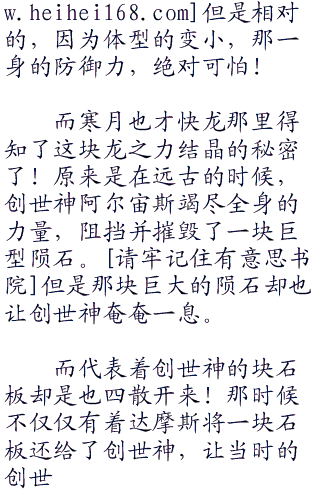 w.heihei168.com]但是相对
的，因为体型的变小，那一
身的防御力，绝对可怕！
而寒月也才快龙那里得
知了这块龙之力结晶的秘密
了！原来是在远古的时候，
创世神阿尔宙斯竭尽全身的
力量，阻挡并摧毁了一块巨
型陨石。[请牢记住有意思书
院]但是那块巨大的陨石却也
让创世神奄奄一息。
而代表着创世神的块石
板却是也四散开来！那时候
不仅仅有着达摩斯将一块石
板还给了创世神，让当时的
创世